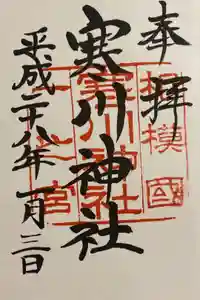 奉拝
相模國
寒川神社
寒川神社
一之宮
平成二十八年一月三日